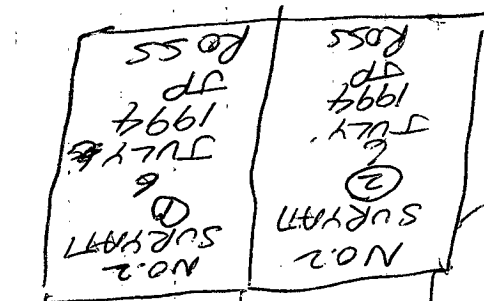 NO.2
SURYAM
②
6
JULY
1994
JP
ROSS
NO.2
SURYAM
①
6
JULY
1994
JP
ROSS